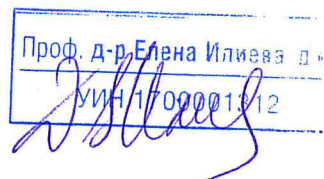 Проф. д-р Елена Илиева
УИН 1700001312